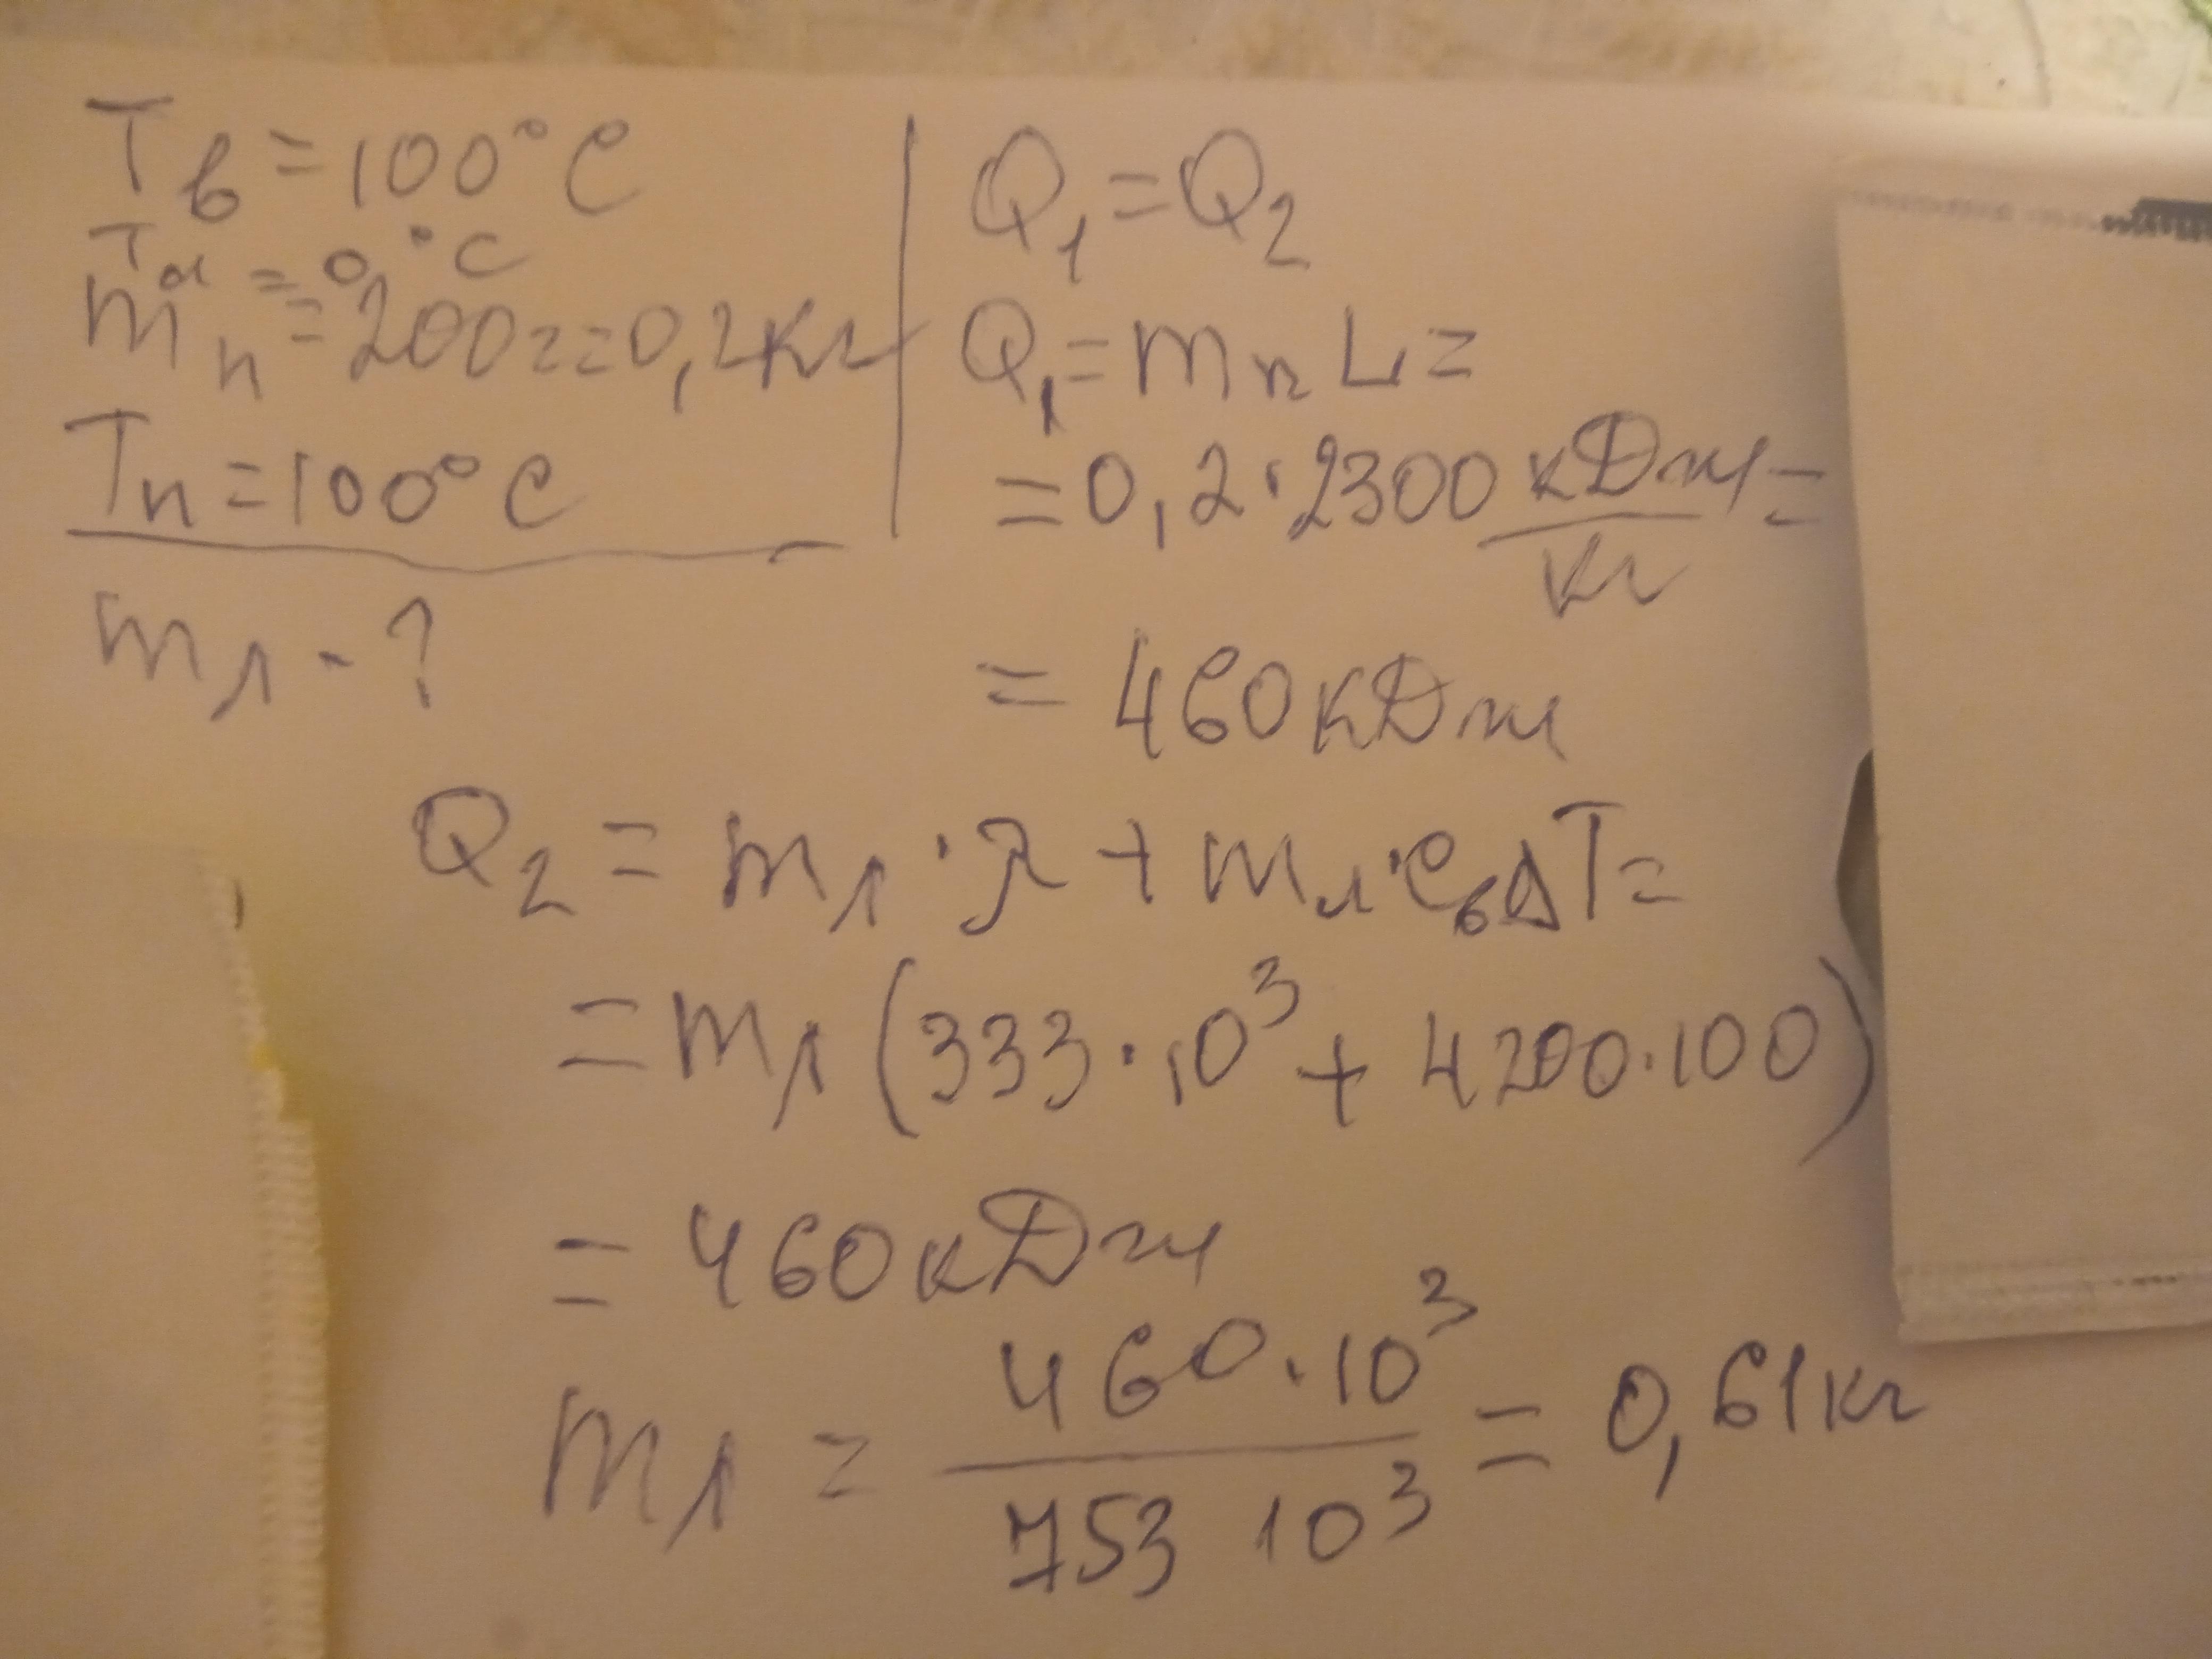 Tв = 100°C
Tл = 0°C
mп = 200г = 0,2кг
Tп = 100°C
mл - ?
Q₁ = Q₂
Q₁ = mп L =
= 0,2 · 2300 кДж/кг =
= 460 кДж
Q₂ = mл · λ + mл · cв ΔT =
= mл (333 · 10³ + 4200 · 100)
= 460 кДж
mл = 460 · 10³ / 753 10³ = 0,61 кг